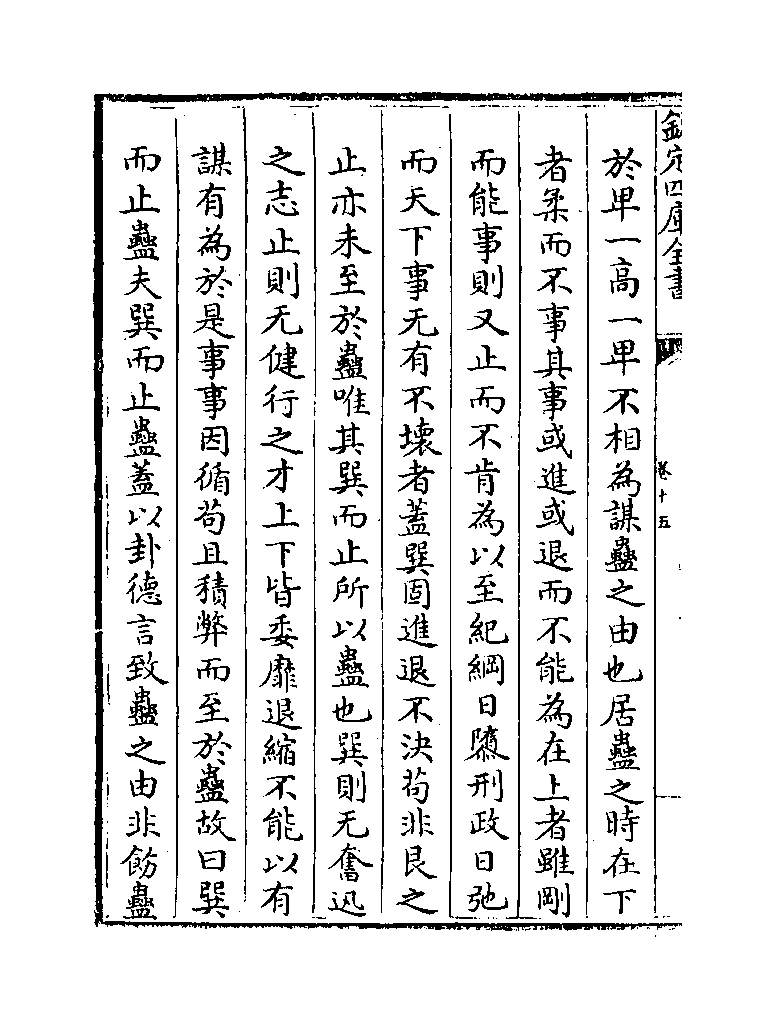 欽定四庫全書
卷十五
於卑一高一卑不相為謀蠱之由也居蠱之時在下
者柔而不事其事或進或退而不能為在上者雖剛
而能事則又止而不肯為以至紀綱日隳刑政日弛
而天下事无有不壞者蓋巽固進退不決苟非艮之
止亦未至於蠱唯其巽而止所以蠱也巽則无奮迅
之志止則无健行之才上下皆委靡退縮不能以有
謀有為於是事事因循苟且積弊而至於蠱故曰巽
而止蠱夫巽而止蠱蓋以卦德言致蠱之由非飭蠱